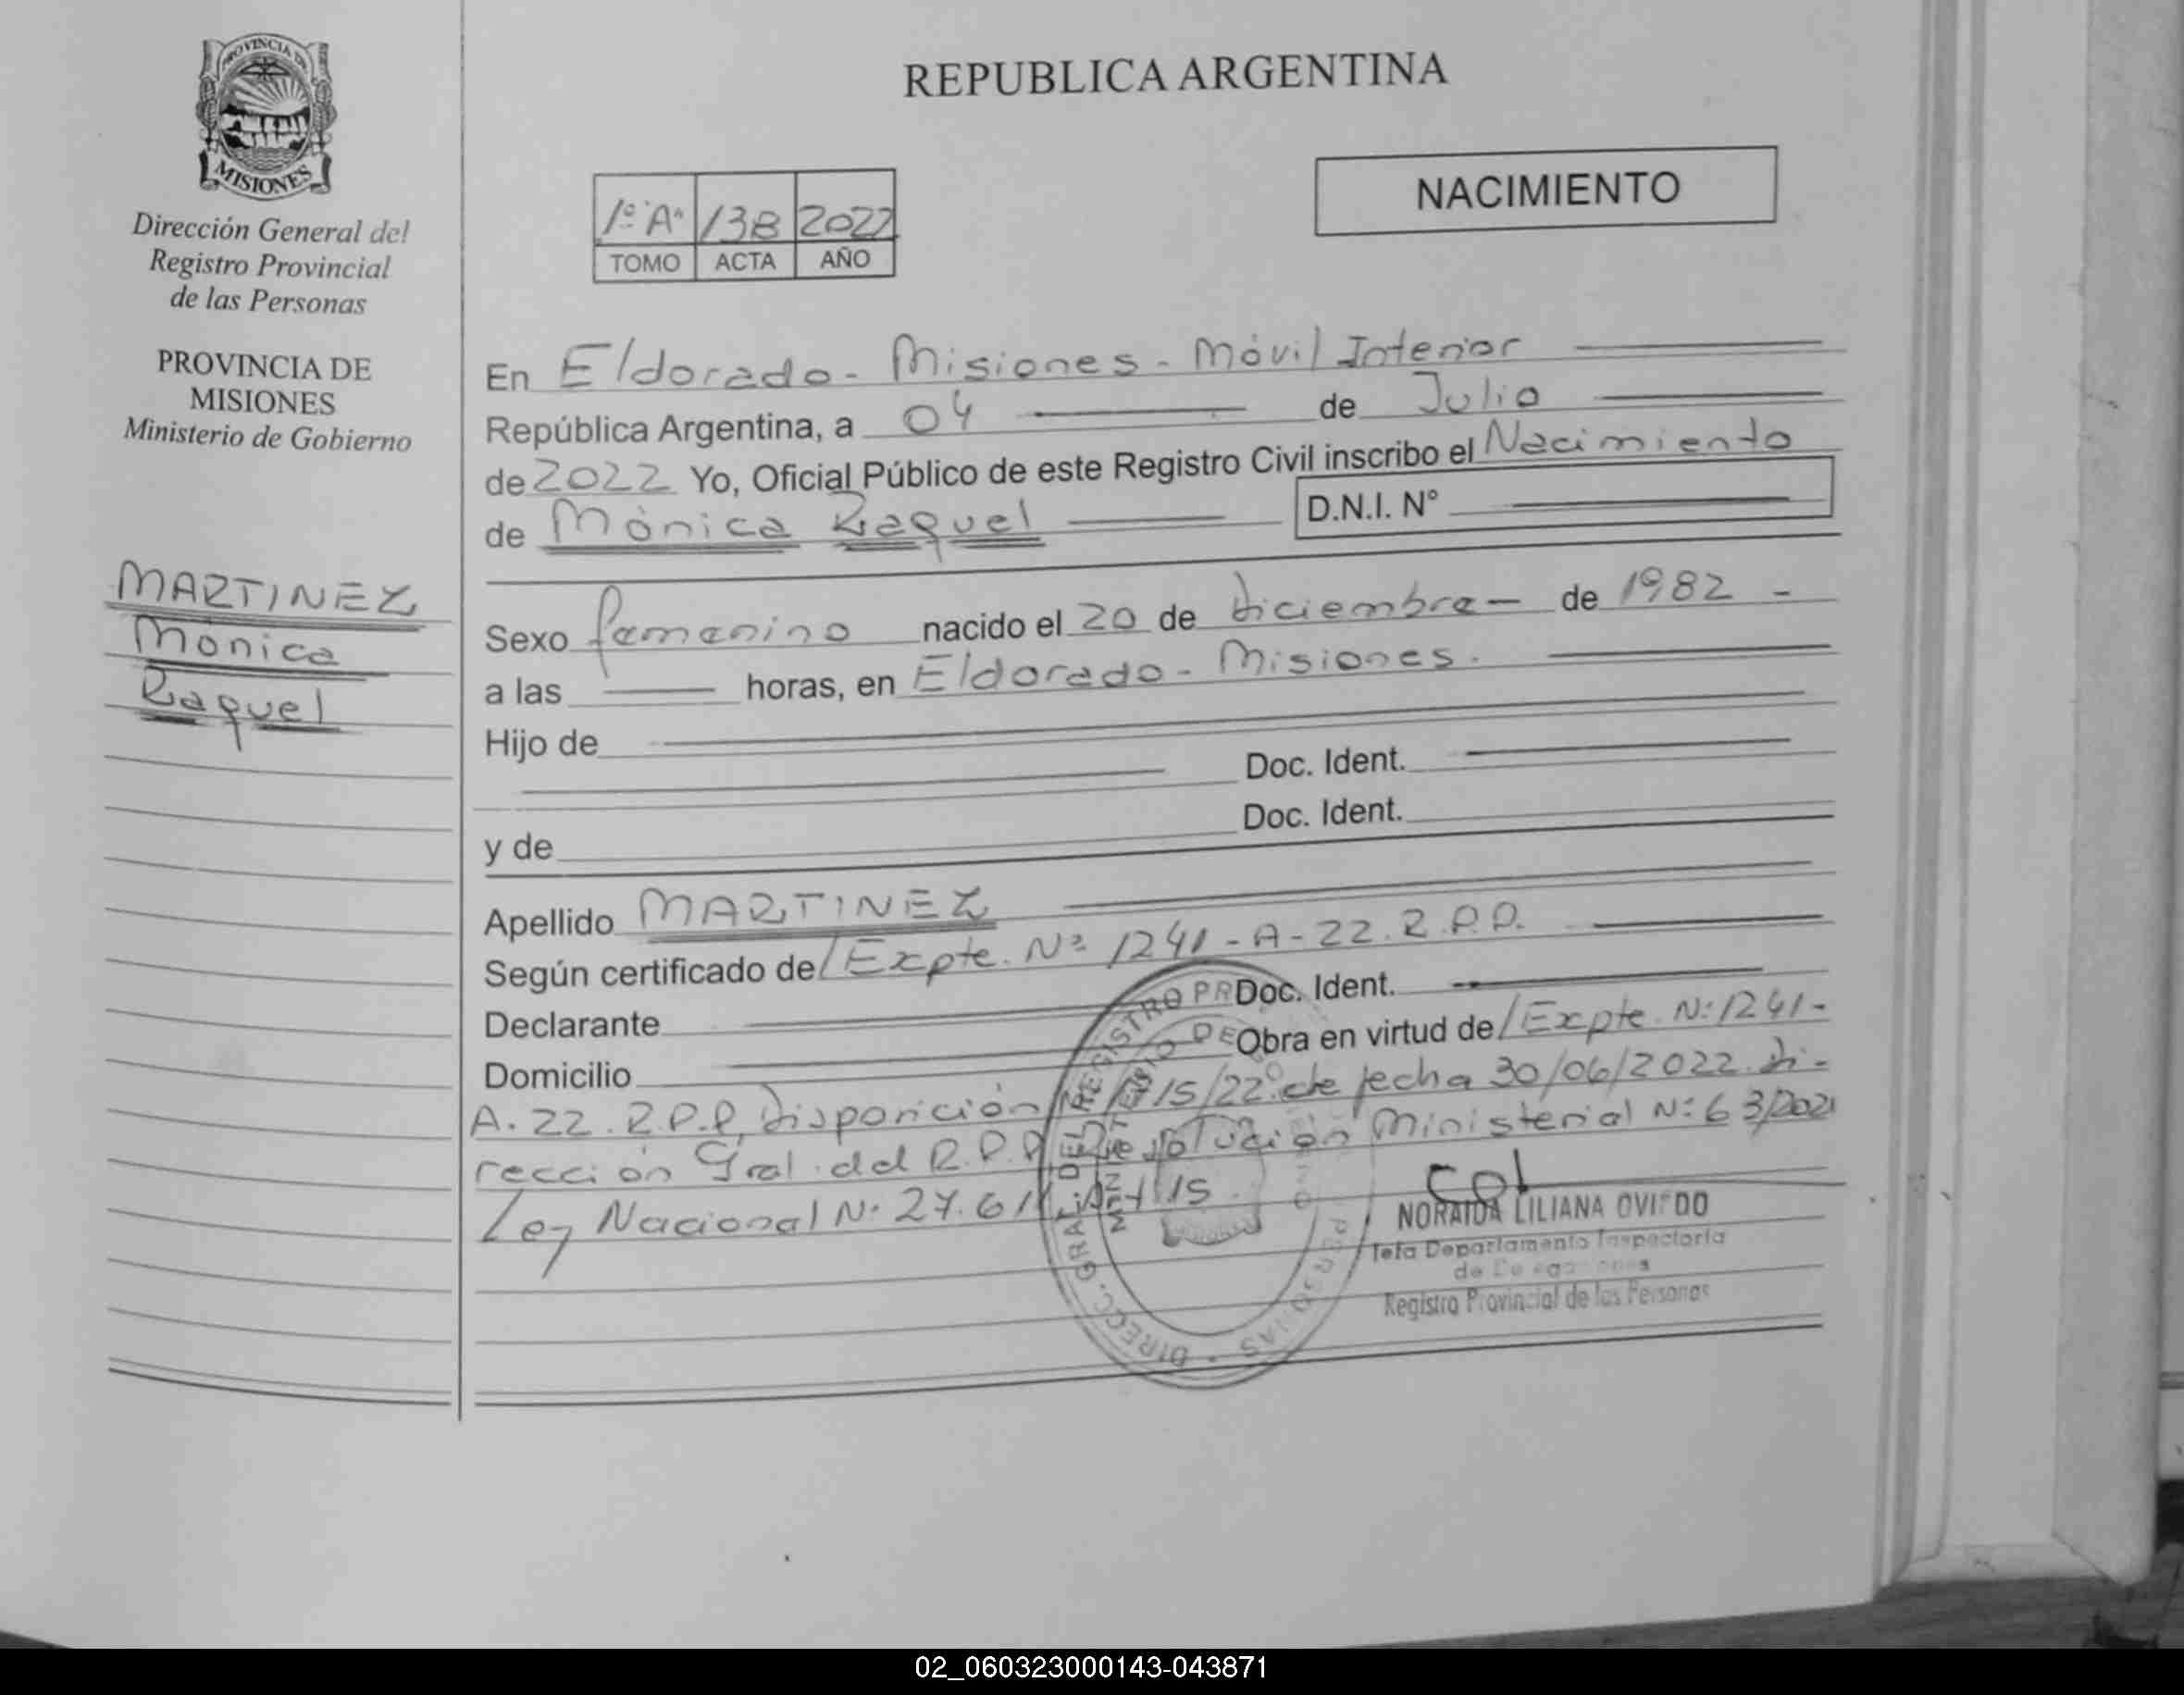 PROVINCIA DE
MISIONES
Dirección General del
Registro Provincial
de las Personas
PROVINCIA DE
MISIONES
Ministerio de Gobierno
MARTINEZ
Mónica
Raquel
REPUBLICA ARGENTINA
NACIMIENTO
1º "A" 138 2022
TOMO ACTA AÑO
En Eldorado - Misiones - Móvil Interior
República Argentina, a 04 de Julio
de 2022 Yo, Oficial Público de este Registro Civil inscribo el Nacimiento
de Mónica Raquel D.N.I. N°
Sexo femenino nacido el 20 de Diciembre - de 1982 -
a las horas, en Eldorado - Misiones.
Hijo de
Doc. Ident.
Doc. Ident.
y de
Apellido MARTINEZ
Según certificado de/ Expte. Nº 1241 - A - 22. R.P.P.
Declarante Doc. Ident.
Domicilio Obra en virtud de/ Expte. N: 1241 -
A. 22. R.P.P, Disposición 715/22 de fecha 30/06/2022. Di-
rección Gral. del R.P.P Resolución Ministerial N: 63/2021
Ley Nacional N: 27.611 Art 15.
NORAIDA LILIANA OVIEDO
Jefa Departamento Inspectoría
de
Registro Provincial de las Personas
DIREC. GRAL DEL REGISTRO
02_060323000143-043871